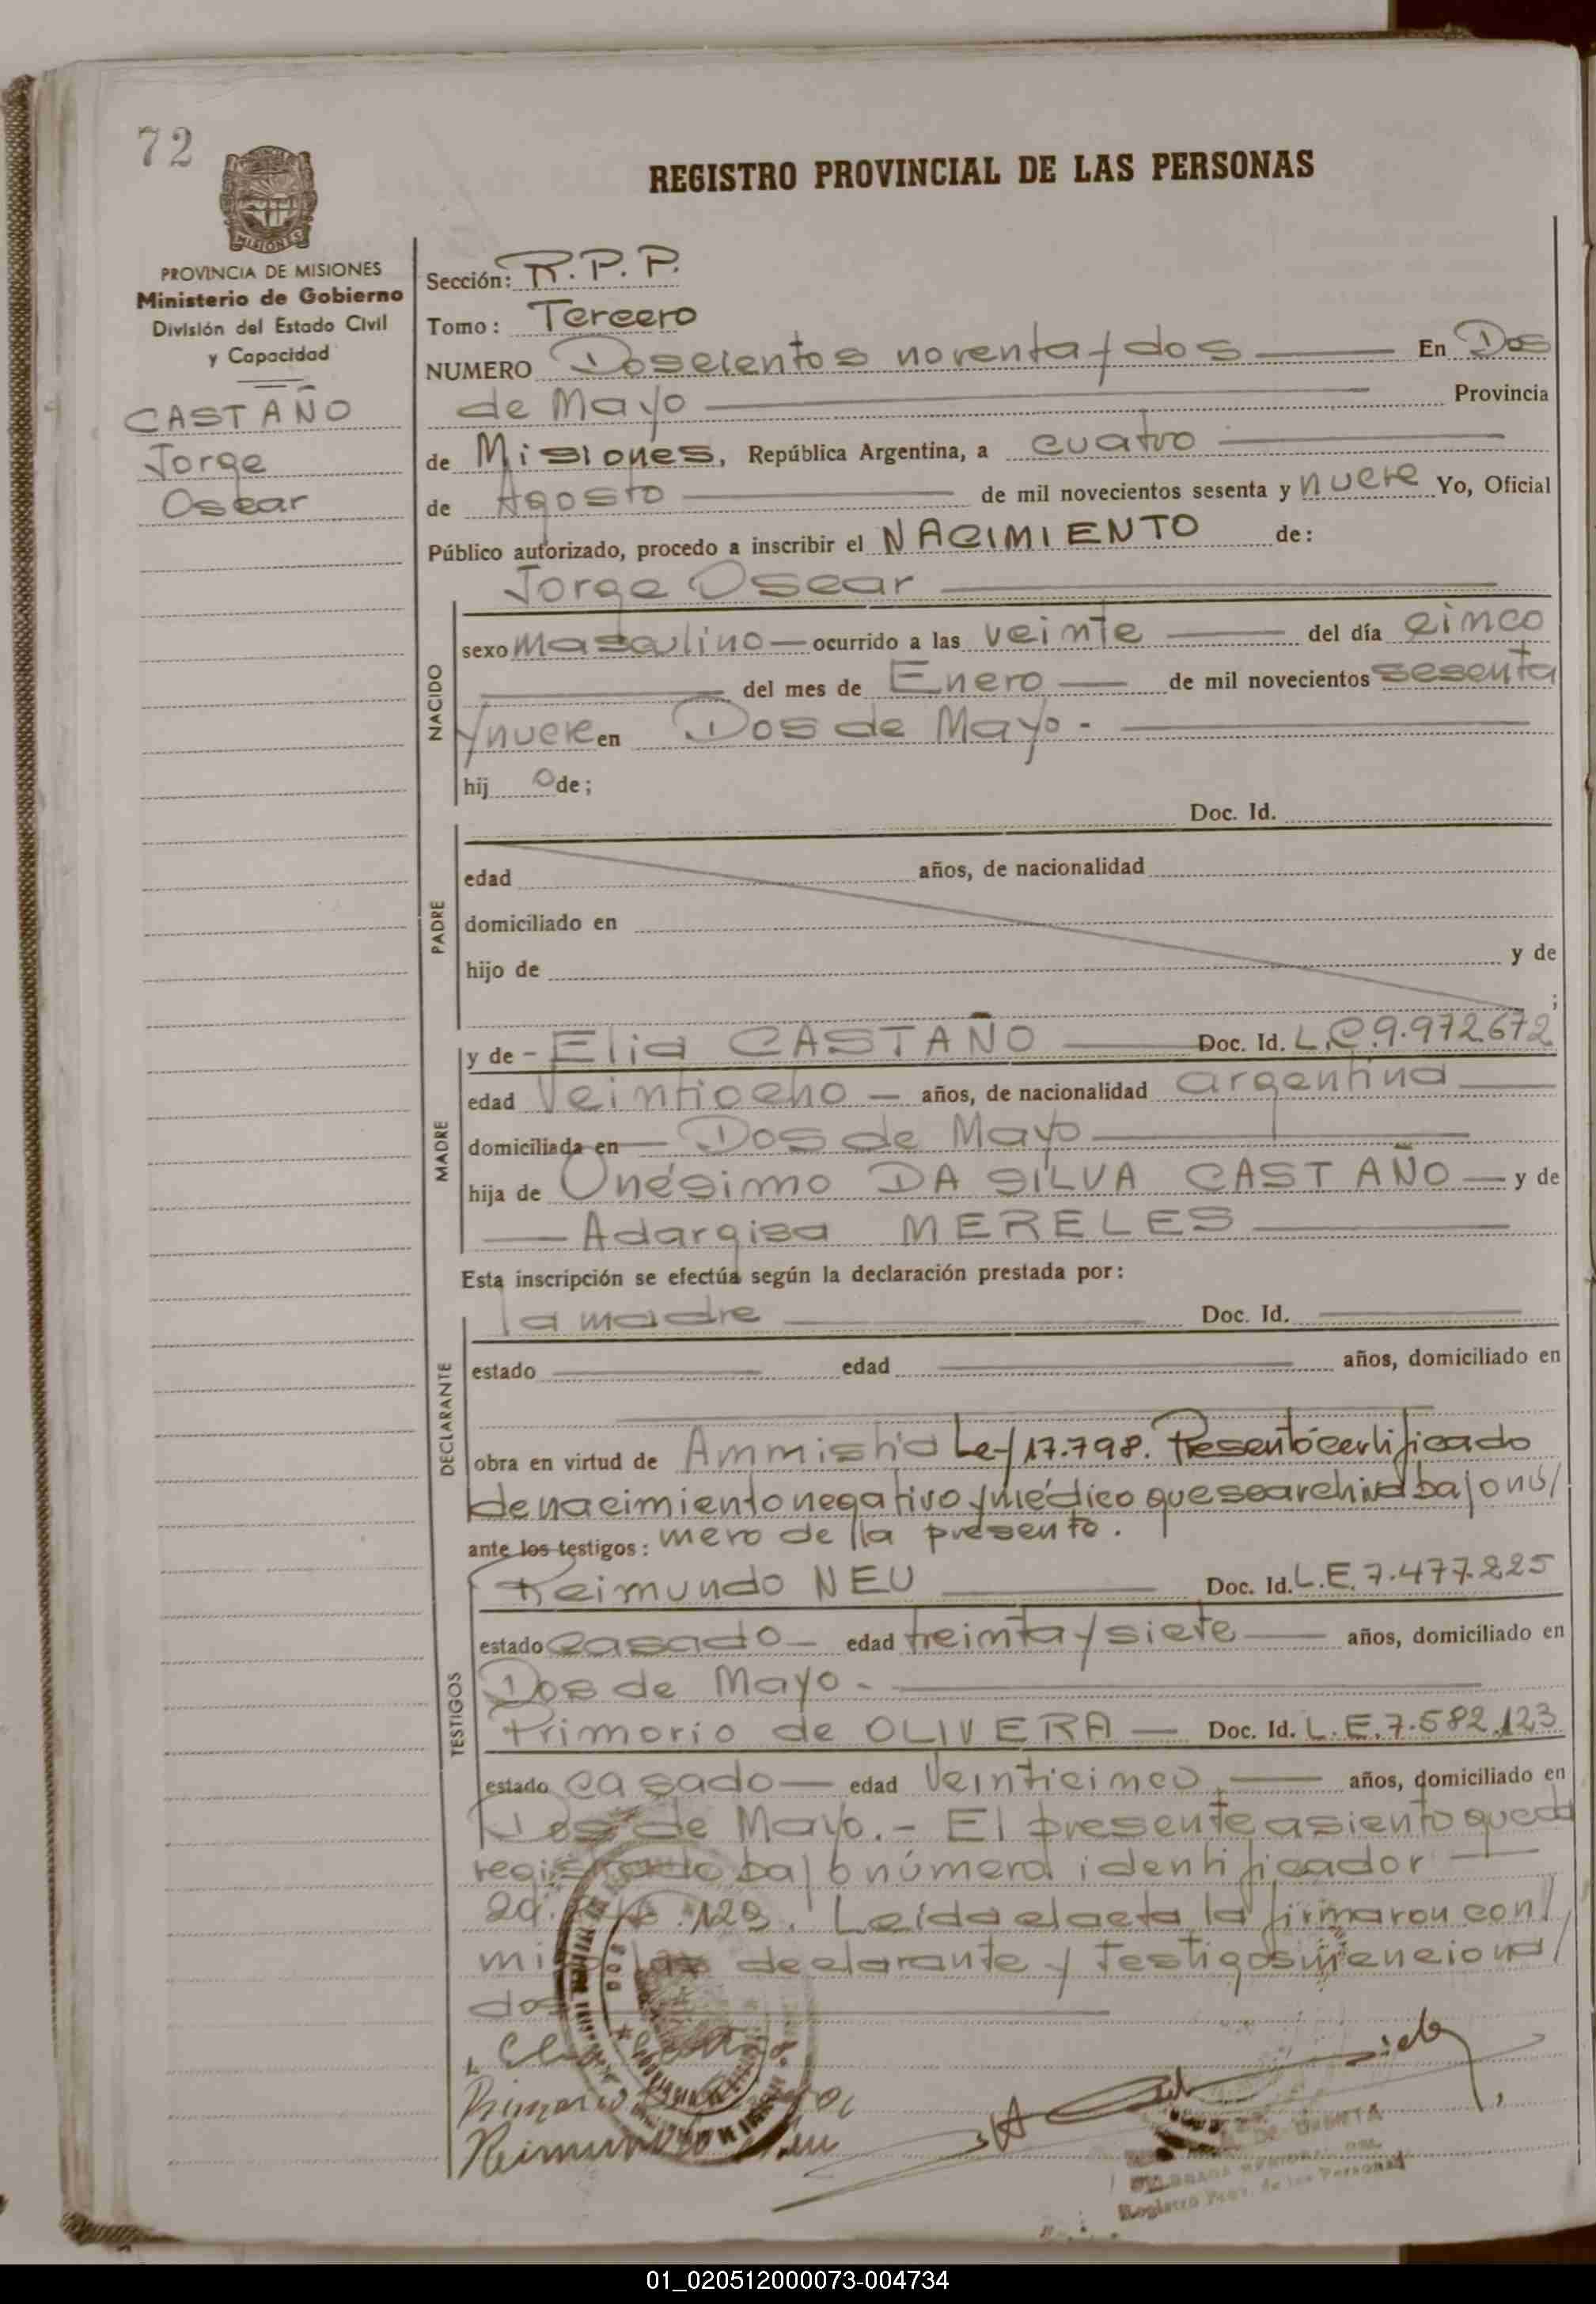 72
MISIONES
REGISTRO PROVINCIAL DE LAS PERSONAS
PROVINCIA DE MISIONES
Ministerio de Gobierno
División del Estado Civil
y Capacidad
CASTAÑO
Jorge
Oscar
Sección: R.P.P.
Tomo: Tercero
NUMERO Doscientos noventa y dos En Dos
de Mayo Provincia
de Misiones, República Argentina, a cuatro
de Agosto de mil novecientos sesenta y nueve Yo, Oficial
Público autorizado, procedo a inscribir el NACIMIENTO de:
Jorge Oscar
NACIDO
sexo masculino ocurrido a las veinte del día cinco
del mes de Enero de mil novecientos sesenta
y nueve en Dos de Mayo.-
hij o de;
PADRE
Doc. Id.
edad años, de nacionalidad
domiciliado en
hijo de y de
;
MADRE
y de - Elia CASTAÑO Doc. Id. L.C. 9.972672
edad Veintiocho años, de nacionalidad argentina
domiciliada en Dos de Mayo
hija de Onésimo DA SILVA CASTAÑO y de
Adargisa MERELES
Esta inscripción se efectúa según la declaración prestada por:
DECLARANTE
la madre Doc. Id.
estado edad años, domiciliado en
obra en virtud de Ammistia Ley 17.798. Presentó certificado
de nacimiento negativo y médico que se archiva bajo nú/
ante los testigos: mero de la presente.
TESTIGOS
Reimundo NEU Doc. Id. L.E. 7.477.225
estado casado edad treinta y siete años, domiciliado en
Dos de Mayo.-
Primorio de OLIVERA Doc. Id. L.E. 7.582.123
estado casado edad Veinticinco años, domiciliado en
Dos de Mayo.- El presente asiento queda
registrado bajo número identificador
20. 129. Leída el acta la firmaron con/
migo la declarante y testigos menciona/
dos
Primorio
Reimundo Neu
Registro Prov. de las Personas
01_020512000073-004734